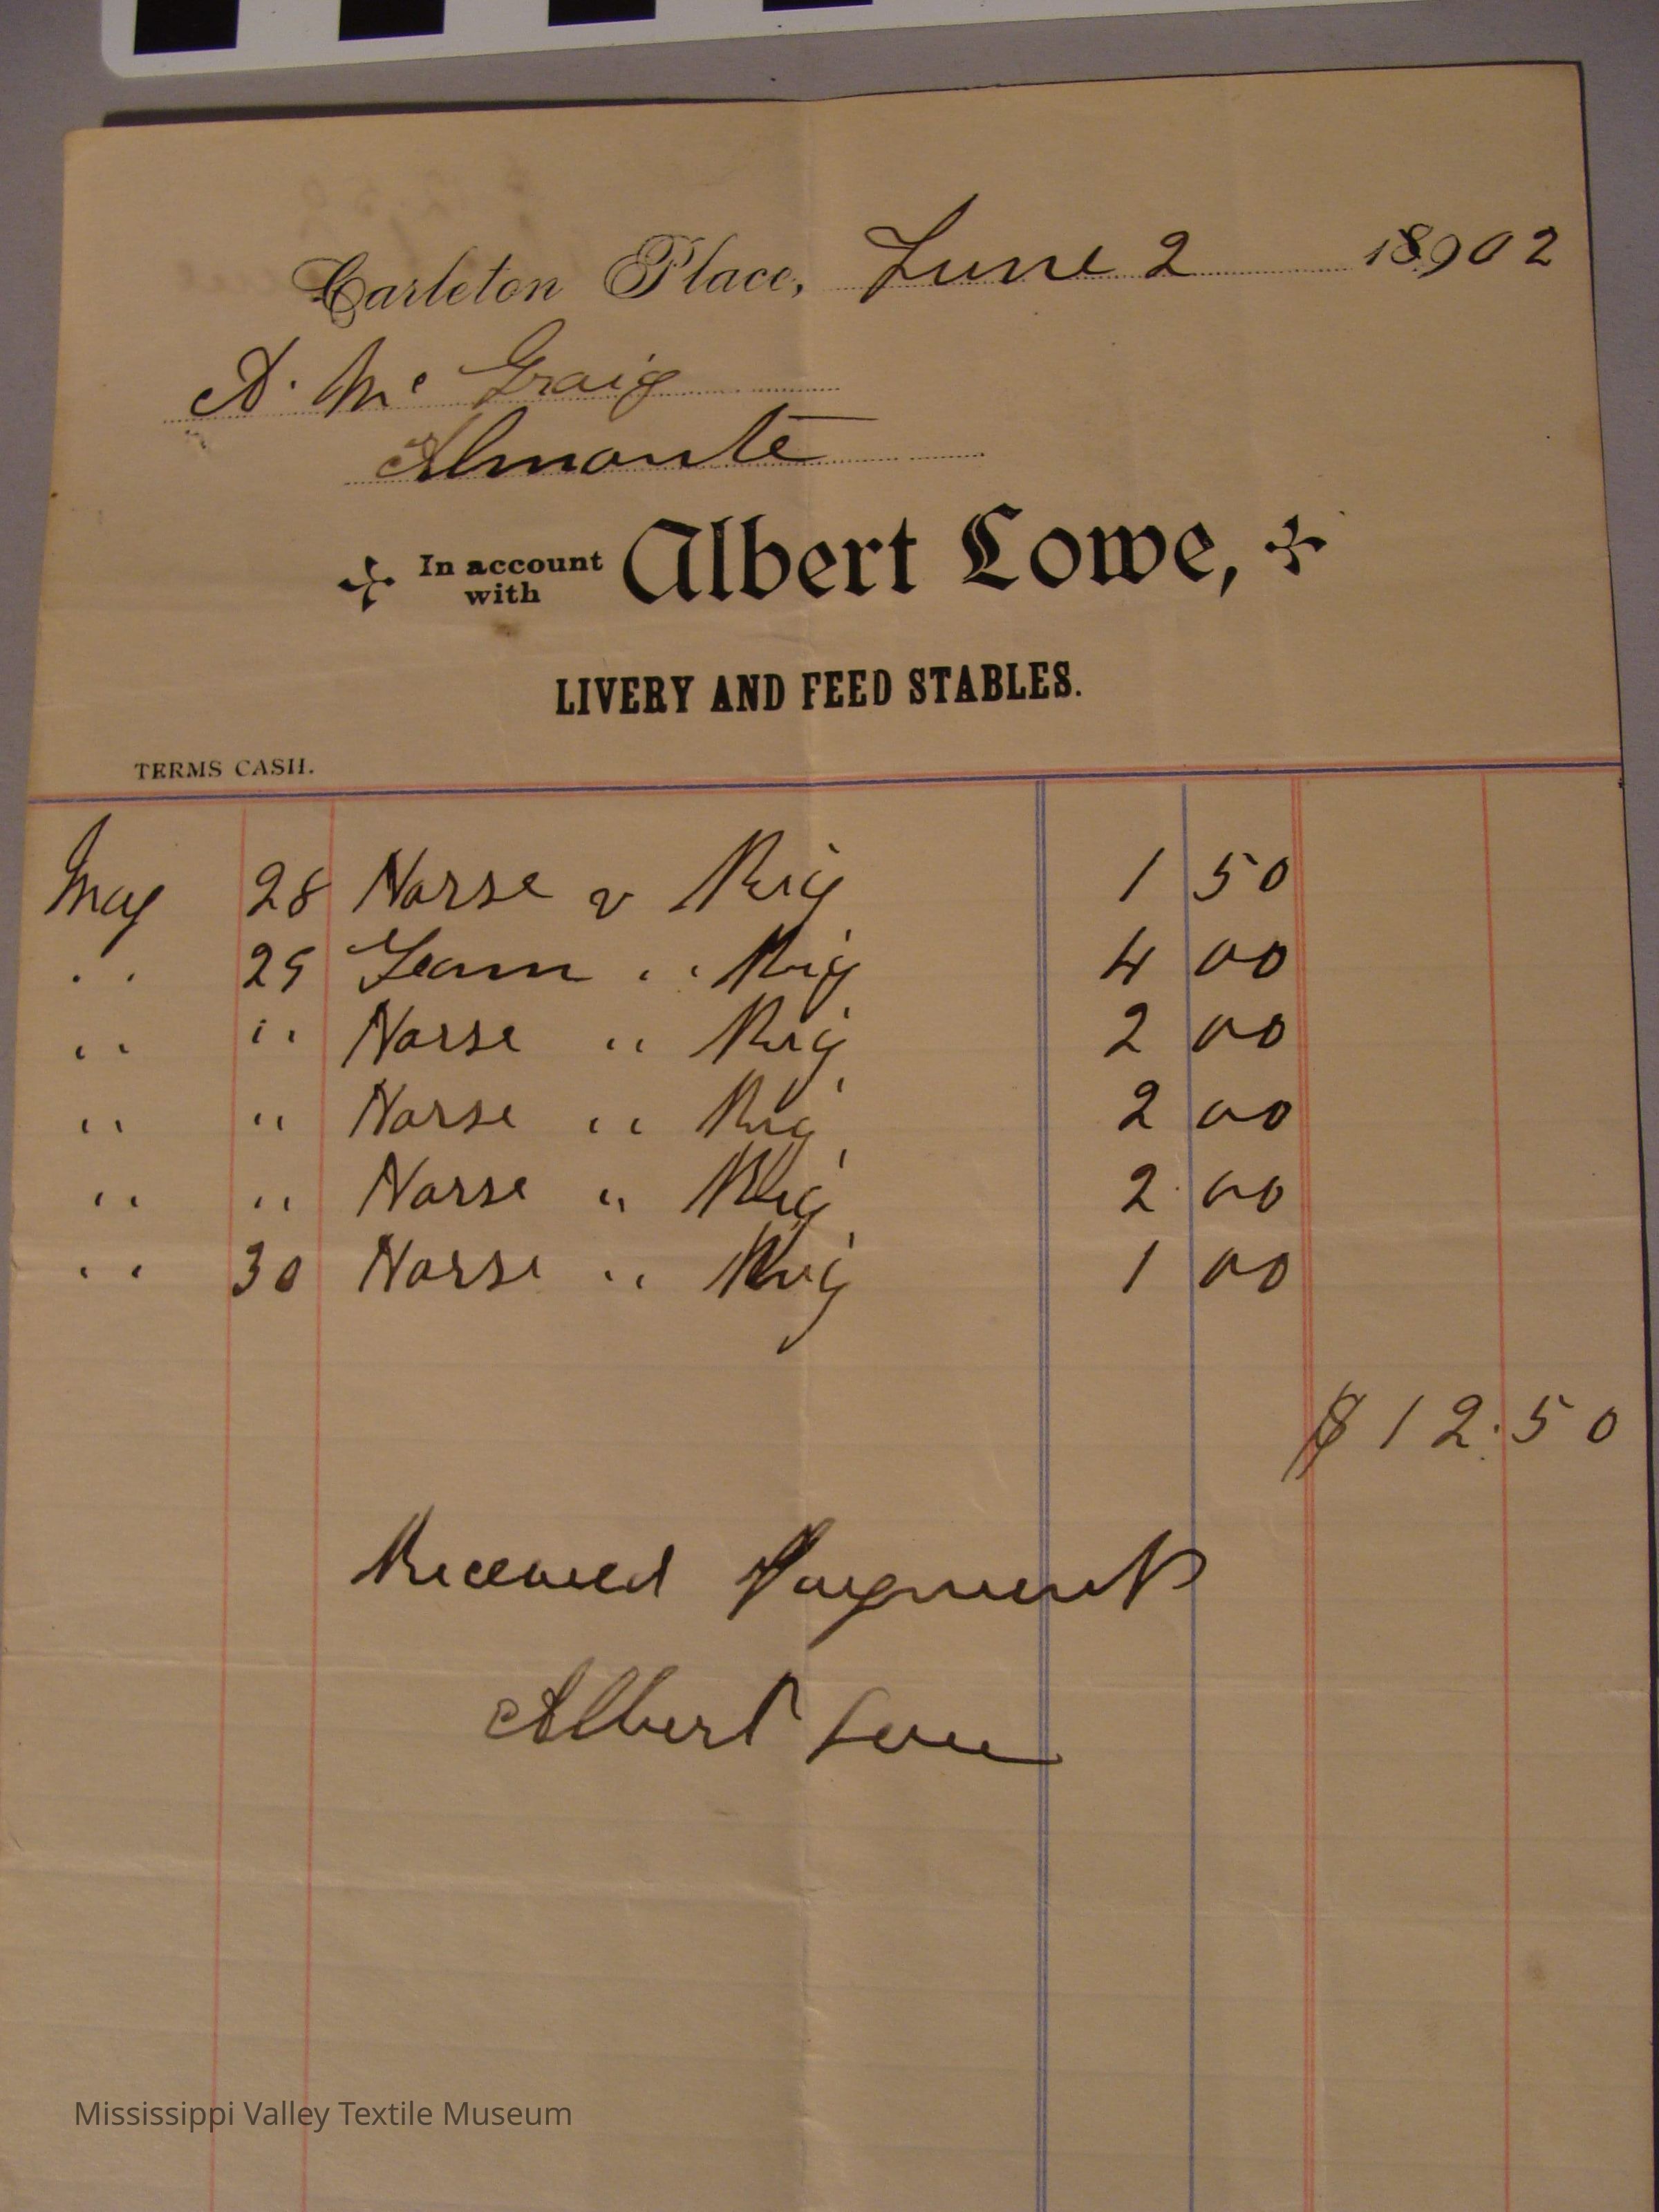 Carleton Place, June 2 18902
A. Mc Graig
Almonte
In account with Albert Lowe,
LIVERY AND FEED STABLES.
TERMS CASH.
May 28 Horse & Rig 1 50
" 29 Team " Rig 4 00
" " Horse " Rig 2 00
" " Horse " Rig 2 00
" " Horse " Rig 2 00
" 30 Horse " Rig 1 00
$12.50
Received Payment
Albert Lowe
Mississippi Valley Textile Museum